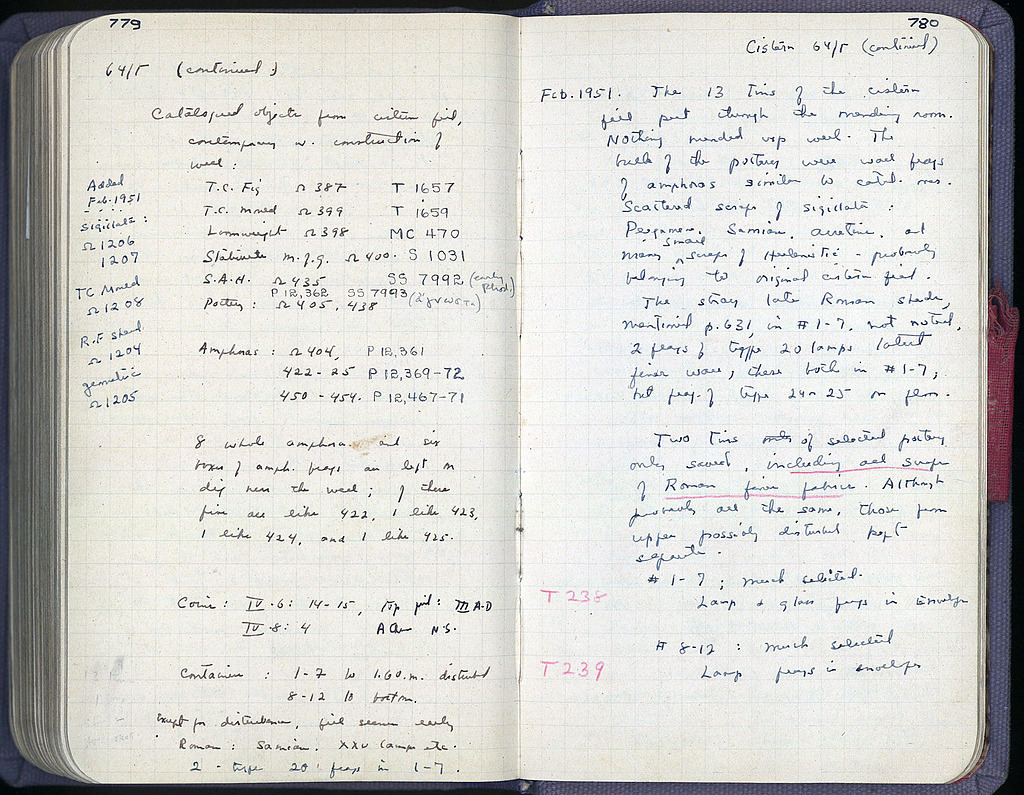 779
64/Γ (continued)
Catalogued objects from cistern fill,
contemporary w. construction of
well:
Added
Feb. 1951
Sigillata:
Ω 1206
1207
TC Mould
Ω 1208
R.F. sherd
Ω 1204
geometric
Ω 1205
T.C. Fig Ω 387 T 1657
T.C. mould Ω 399 T 1659
Loomweight Ω 398 MC 470
Statuette m.f.g. Ω 400. S 1031
S.A.H. Ω 435 SS 7992 (early
P 12,362 SS 7993 (ἄγνωστα)
Pottery: Ω 405, 438
Amphoras: Ω 404, P 12,361
422-25 P 12,369-72
450-454. P 12,467-71
8 whole amphoras and six
boxes of amph. frags are left on
dig near the well; of these
five are like 422, 1 like 423,
1 like 424, and 1 like 425.
Coins: IV-6: 14-15, top fill: III A.D
IV-8: 4 N.S.
Container: 1-7 to 1.60 m. disturbed
8-12 to bottom.
Except for disturbance, fill seems early
Roman: Samian, XXV lamps etc.
2 - type 20 frags in 1-7.
780
Cistern 64/Γ (continued)
Feb. 1951. The 13 tins of the cistern
fill put through the mending room.
Nothing mended up well. The
bulk of the pottery were wall frags
of amphoras similar to catal. nos.
Scattered scraps of sigillata:
Pergamene, Samian, arretine, and
many small scraps of Hellenistic - probably
belonging to original cistern fill.
The stray late Roman sherds,
mentioned p. 631, in #1-7, not noted,
2 frags of type 20 lamps latest
finer ware, these both in #1-7;
but frag. of type 24-25 on floor.
Two tins only of selected pottery
only saved, including all scraps
of Roman finer fabric. Although
probably all the same, those from
upper possibly disturbed kept
separate.
#1-7; much selected.
T 238 Lamp & glass frags in envelope
#8-12: much selected
T 239 Lamp frags in envelopes